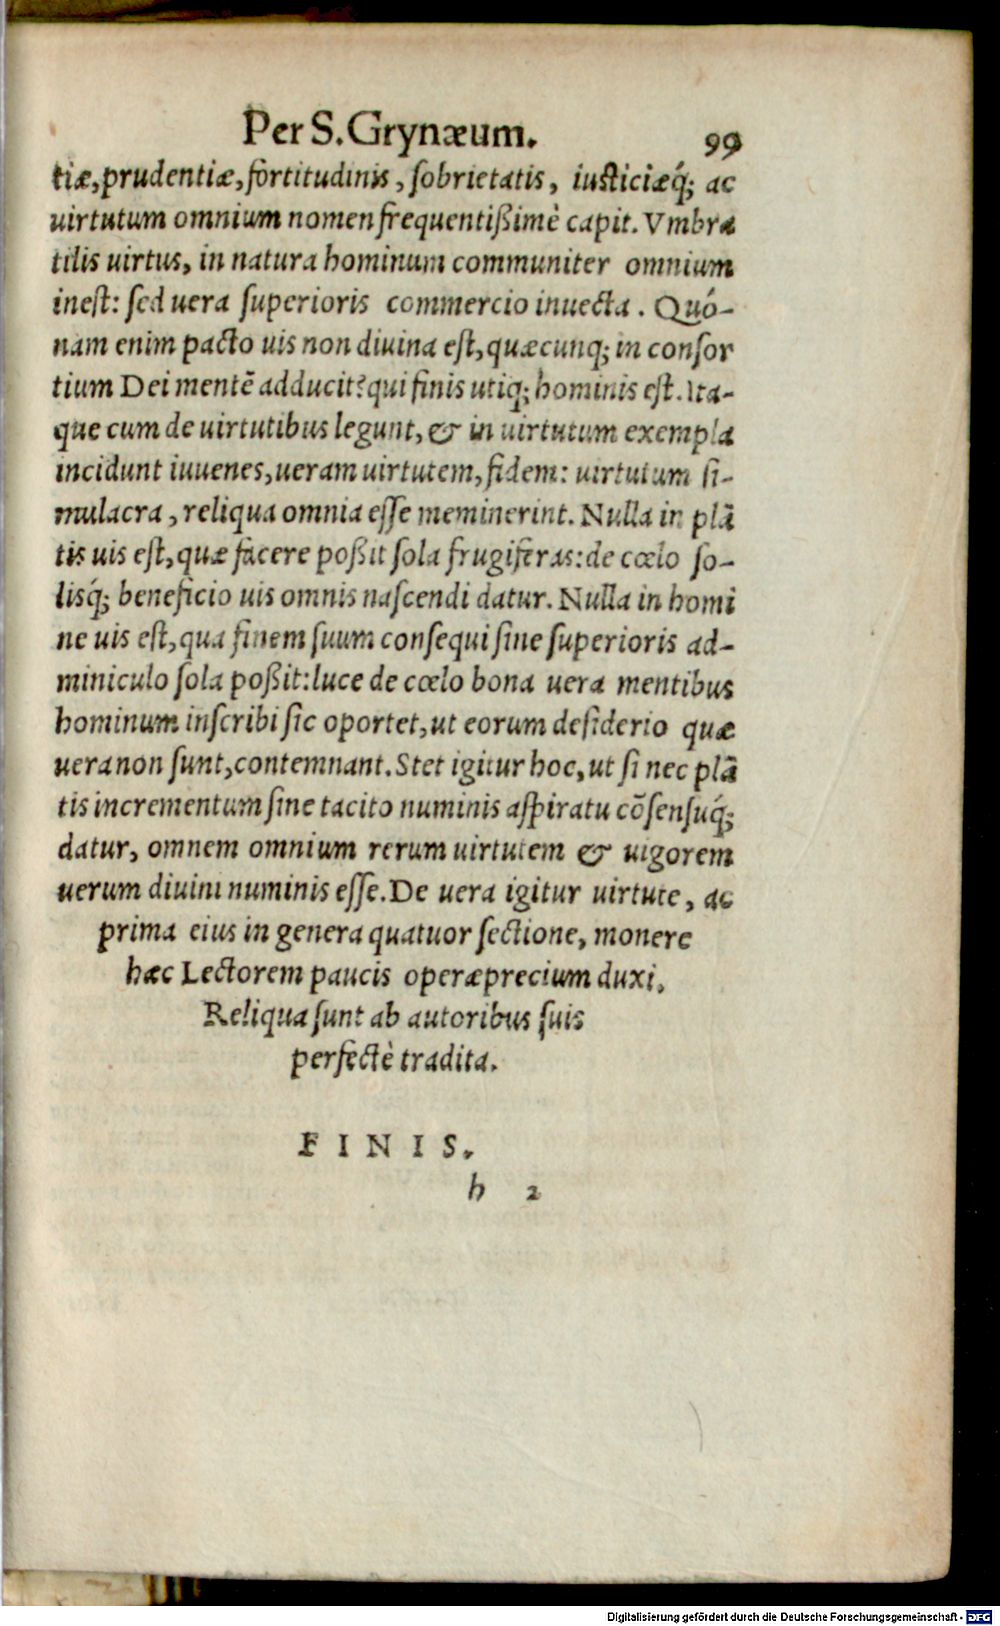 Per S. Grynæum. 99
tiæ, prudentiæ, fortitudinis, sobrietatis, iusticiæq́; ac
uirtutum omnium nomen frequentißimè capit. Vmbra
tilis uirtus, in natura hominum communiter omnium
inest: sed uera superioris commercio inuecta. Quó-
nam enim pacto uis non diuina est, quæcunq; in consor
tium Dei mentē adducit? qui finis utiq; hominis est. Ita-
que cum de uirtutibus legunt, & in uirtutum exempla
incidunt iuuenes, ueram uirtutem, fidem: uirtutum si-
mulacra, reliqua omnia esse meminerint. Nulla in plā
tis uis est, quæ facere poßit sola frugiferas: de cœlo so-
lisq́; beneficio uis omnis nascendi datur. Nulla in homi
ne uis est, qua finem suum consequi sine superioris ad-
miniculo sola poßit: luce de cœlo bona uera mentibus
hominum inscribi sic oportet, ut eorum desiderio quæ
uera non sunt, contemnant. Stet igitur hoc, ut si nec plā
tis incrementum sine tacito numinis aspiratu cōsensuq́;
datur, omnem omnium rerum uirtutem & uigorem
uerum diuini numinis esse. De uera igitur uirtute, ac
prima eius in genera quatuor sectione, monere
hæc Lectorem paucis operæprecium duxi.
Reliqua sunt ab autoribus suis
perfectè tradita.
FINIS.
h 2
Digitalisierung gefördert durch die Deutsche Forschungsgemeinschaft - DFG